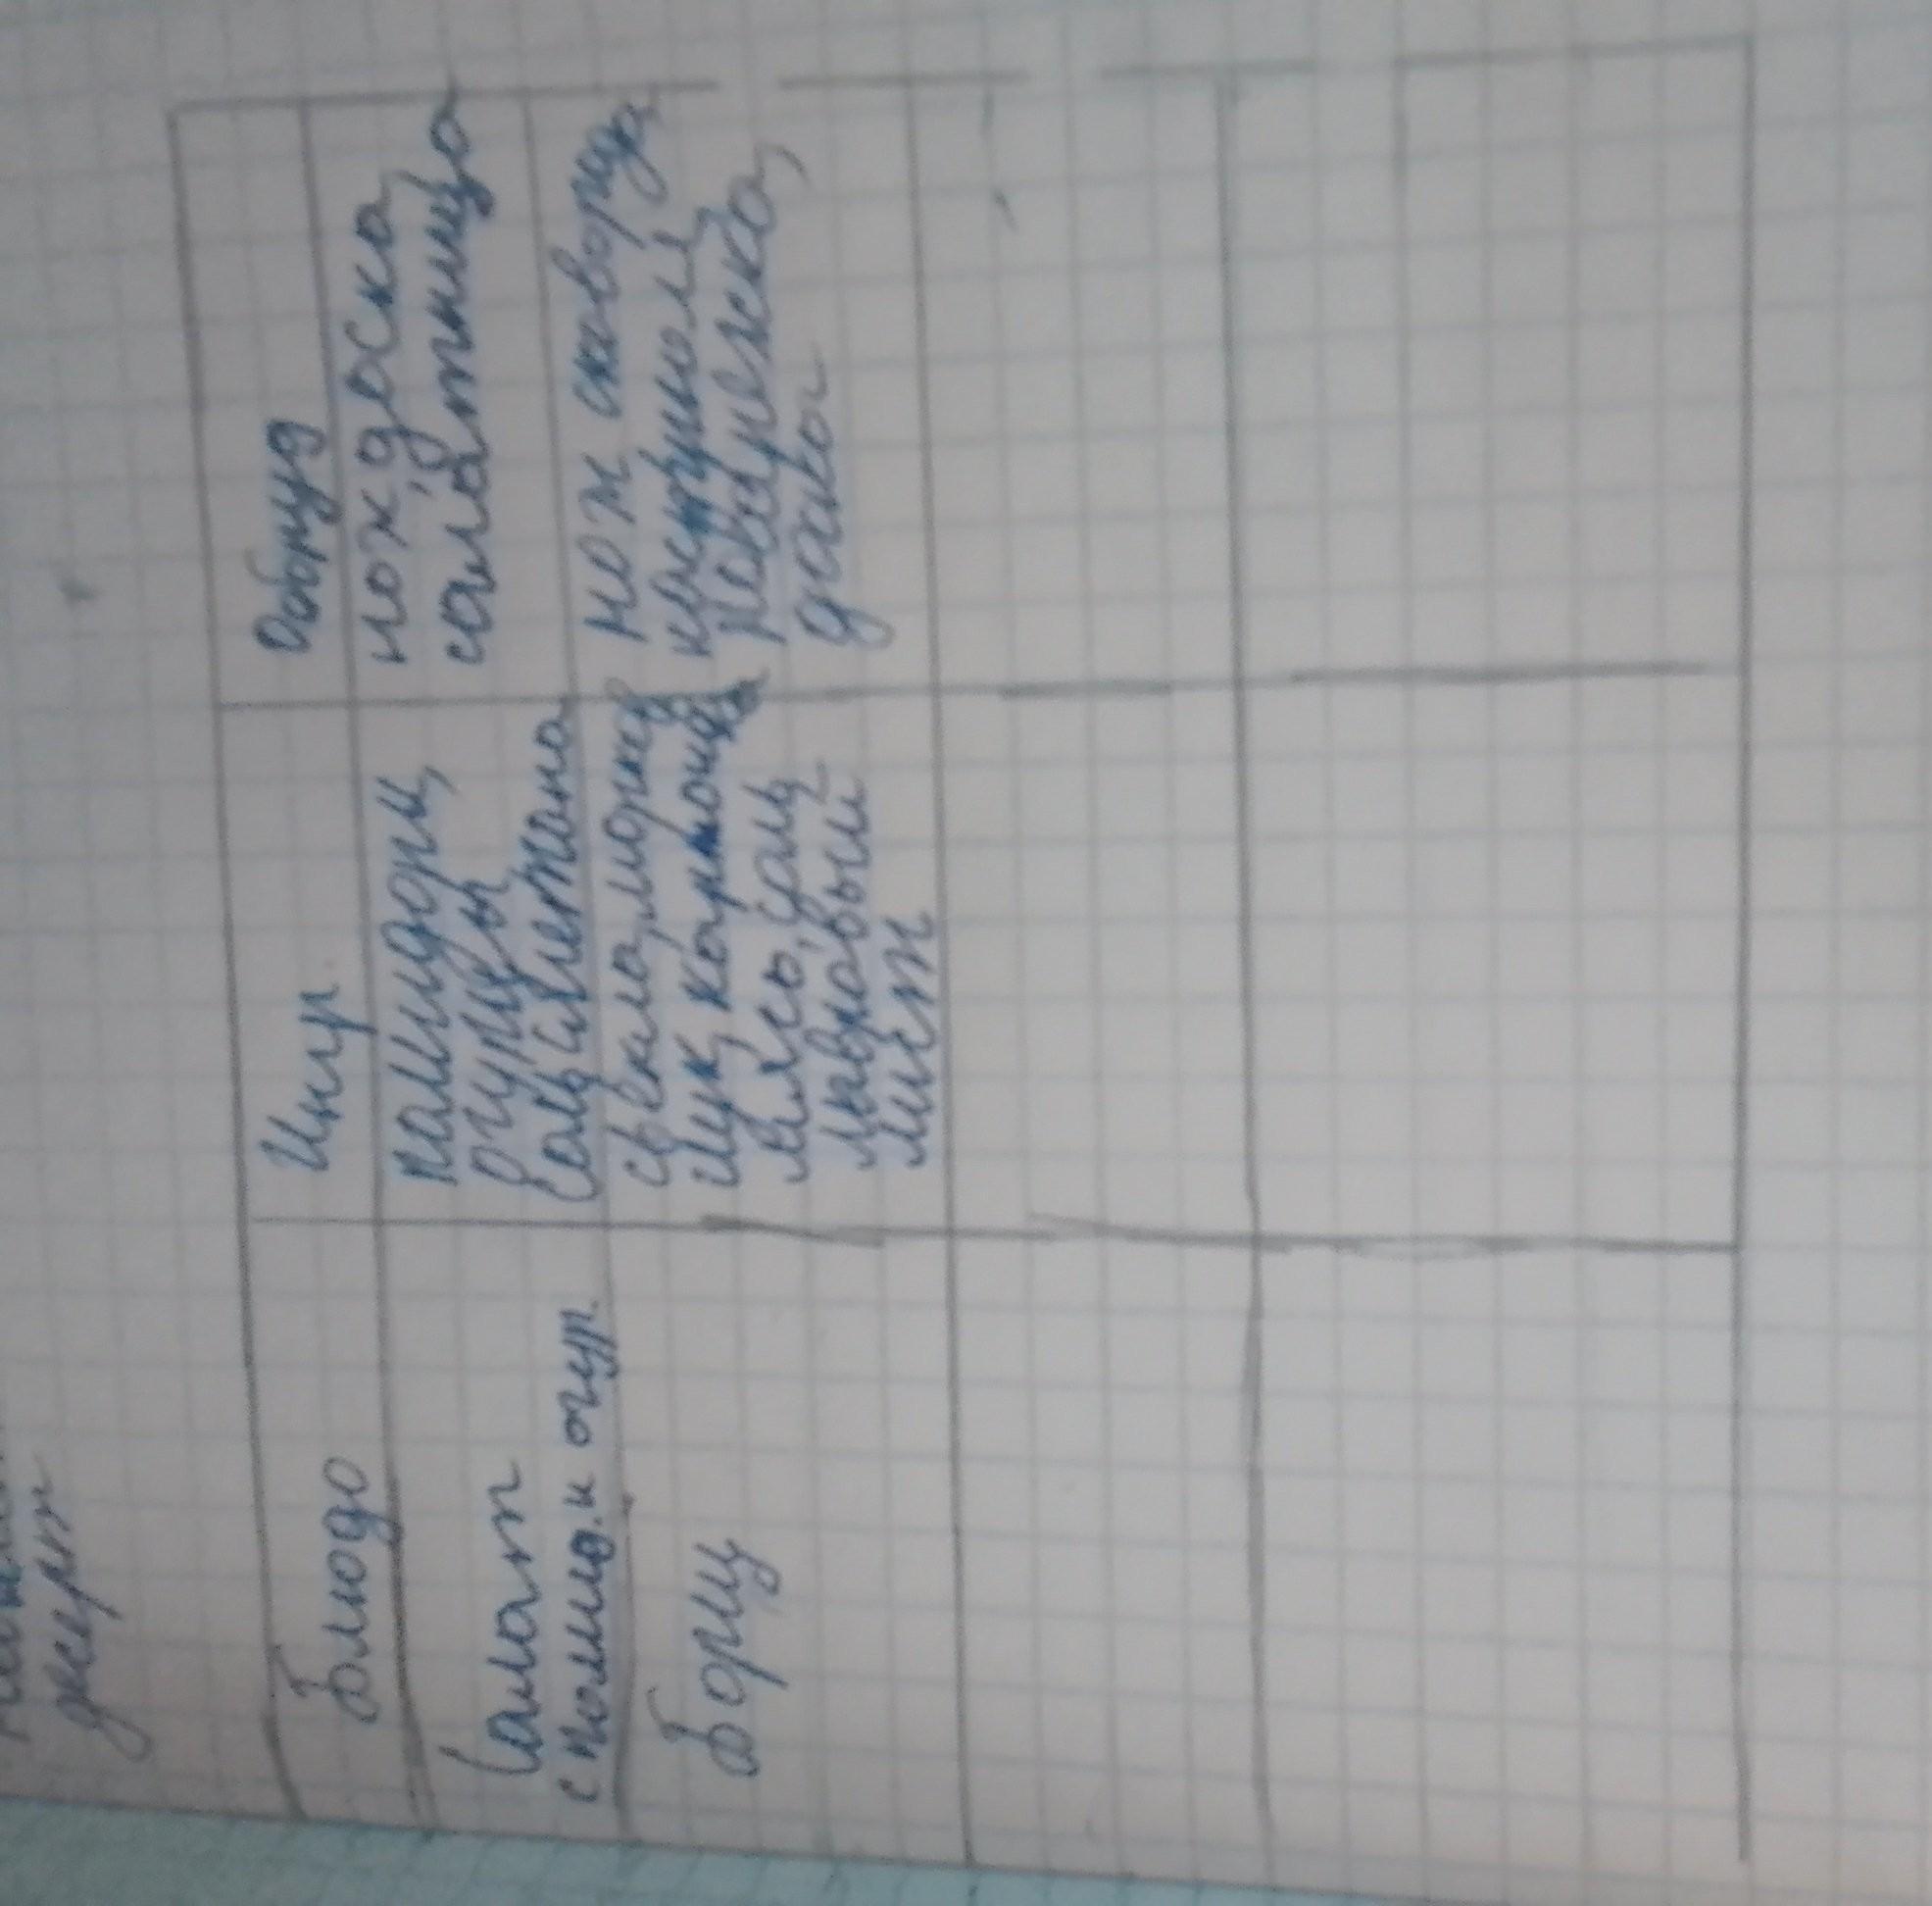 десерт
Блюдо
Ингр.
Оборуд
Салат
с помид. и огур.
помидоры,
огурцы,
Соль, сметана
нож, доска,
салатница
Борщ
свекла, морковь
лук, картошка
мясо, соль,
лавровый
лист
нож сковорода,
кастрюля
поварешка,
доска